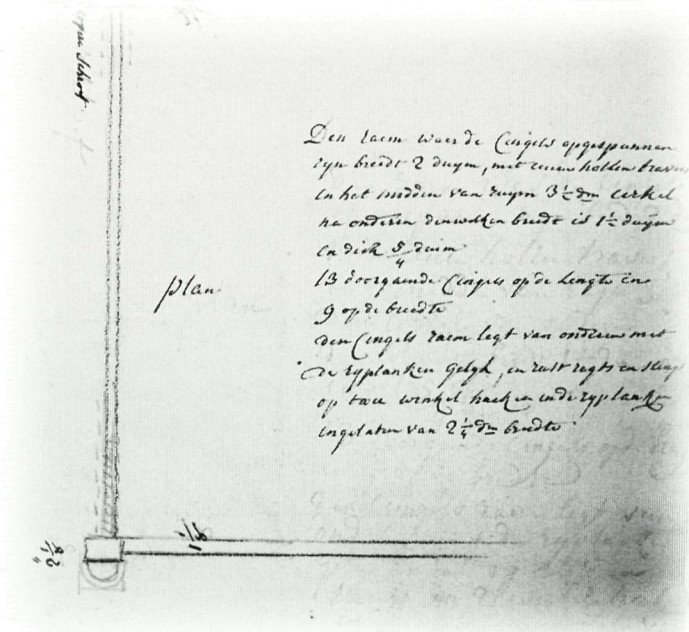 plan
Den raem waer de Cingels opgespannen
zyn breedt 2 duym, met eenen hollen
in het midden van ruym 3 1/2 dm cirkel
na onderen denwelken breedt is 1 1/2 duym
en dick 5/4 duim
13 doorgaende Cingels op de lengte en
9 op de breedte
den Cingels raem legt van onderen met
de zyplanken gelyk, en rust regts en
op twee winkel haeken inde zyplanken
ingelaten van 2 1/4 dm breedte